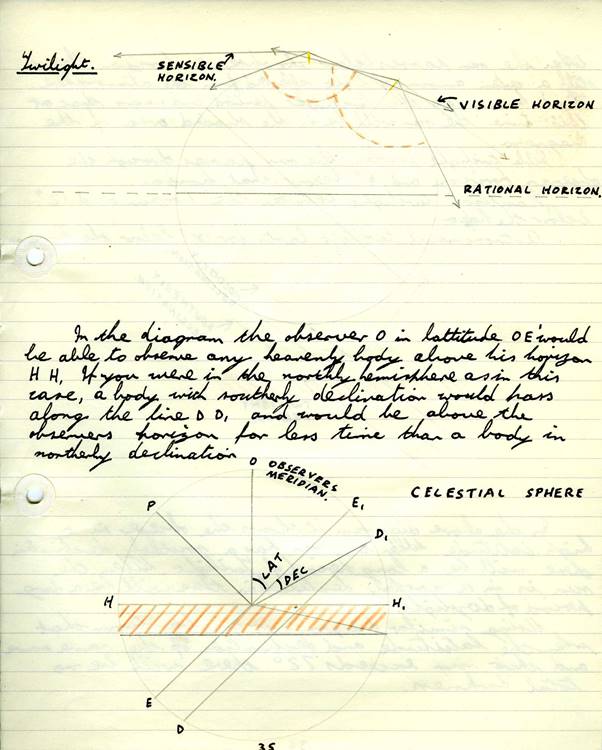 Twilight.
SENSIBLE
HORIZON.
VISIBLE HORIZON
RATIONAL HORIZON.
In the diagram the observer O in lattitude OE' would
be able to observe any heavenly body above his horizon
H H, If you were in the northly hemisphere as in this
case, a body with southerly declination would pass
along the line D D, and would be above the
observers horizon for less time than a body in
northerly declination
O
OBSERVERS
MERIDIAN.
CELESTIAL SPHERE
P
E₁
D₁
LAT
DEC
H
H₁
E
D
35